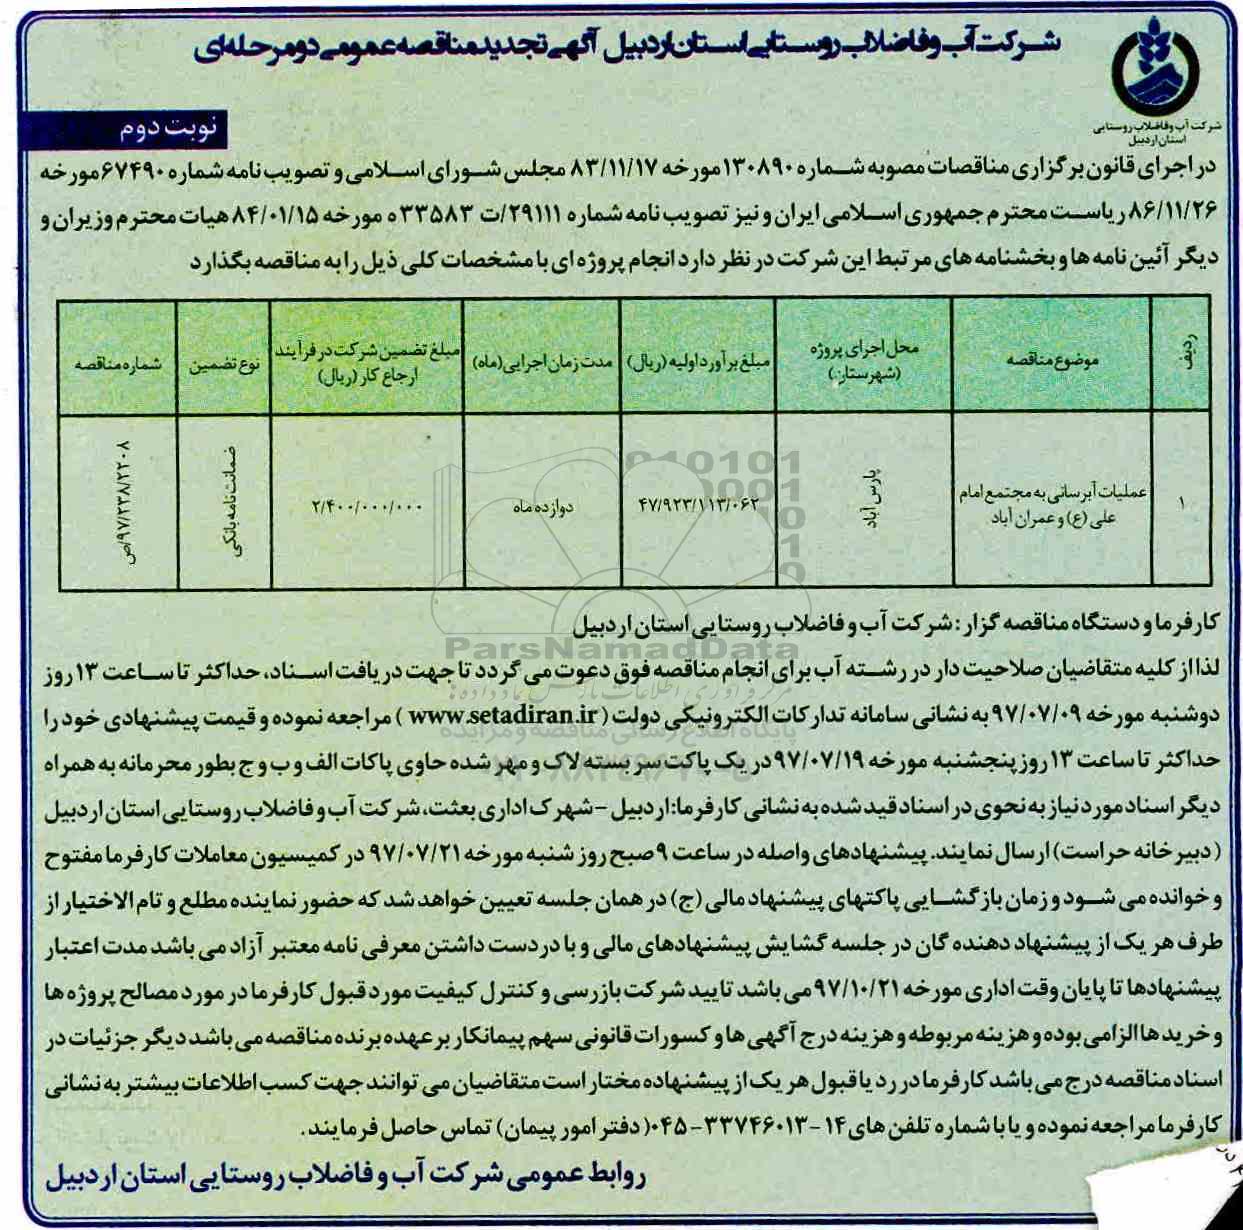 شرکت آب و فاضلاب روستایی استان اردبیل آگهی تجدید مناقصه عمومی دو مرحله‌ای
شرکت آب و فاضلاب روستایی
استان اردبیل
نوبت دوم
در اجرای قانون برگزاری مناقصات مصوبه شماره ۱۳۰۸۹۰ مورخه ۸۳/۱۱/۱۷ مجلس شورای اسلامی و تصویب نامه شماره ۶۷۴۹۰ مورخه
۸۶/۱۱/۲۶ ریاست محترم جمهوری اسلامی ایران و نیز تصویب نامه شماره ۲۹۱۱۱/ت ۳۳۵۸۳ ه مورخه ۸۴/۰۱/۱۵ هیات محترم وزیران و
دیگر آئین نامه ها و بخشنامه های مرتبط این شرکت در نظر دارد انجام پروژه ای با مشخصات کلی ذیل را به مناقصه بگذارد
ردیف | موضوع مناقصه | محل اجرای پروژه (شهرستان) | مبلغ برآورد اولیه (ریال) | مدت زمان اجرایی (ماه) | مبلغ تضمین شرکت در فرآیند ارجاع کار (ریال) | نوع تضمین | شماره مناقصه
۱ | عملیات آبرسانی به مجتمع امام علی (ع) و عمران آباد | پارس آباد | ۴۷/۹۲۳/۱۱۳/۰۶۲ | دوازده ماه | ۲/۴۰۰/۰۰۰/۰۰۰ | ضمانت نامه بانکی | ۹۷/۲۳۸/۲۲۰۸/ص
کارفرما و دستگاه مناقصه گزار : شرکت آب و فاضلاب روستایی استان اردبیل
ParsNamadData
لذا از کلیه متقاضیان صلاحیت دار در رشته آب برای انجام مناقصه فوق دعوت می گردد تا جهت دریافت اسناد، حداکثر تا ساعت ۱۳ روز
دوشنبه مورخه ۹۷/۰۷/۰۹ به نشانی سامانه تدارکات الکترونیکی دولت ( www.setadiran.ir ) مراجعه نموده و قیمت پیشنهادی خود را
حداکثر تا ساعت ۱۳ روز پنجشنبه مورخه ۹۷/۰۷/۱۹ در یک پاکت سر بسته لاک و مهر شده حاوی پاکات الف و ب و ج بطور محرمانه به همراه
دیگر اسناد مورد نیاز به نحوی در اسناد قید شده به نشانی کارفرما: اردبیل - شهرک اداری بعثت، شرکت آب و فاضلاب روستایی استان اردبیل
( دبیرخانه حراست) ارسال نمایند. پیشنهادهای واصله در ساعت ۹ صبح روز شنبه مورخه ۹۷/۰۷/۲۱ در کمیسیون معاملات کارفرما مفتوح
و خوانده می شود و زمان بازگشایی پاکتهای پیشنهاد مالی (ج) در همان جلسه تعیین خواهد شد که حضور نماینده مطلع و تام الاختیار از
طرف هر یک از پیشنهاد دهنده گان در جلسه گشایش پیشنهادهای مالی و با در دست داشتن معرفی نامه معتبر آزاد می باشد مدت اعتبار
پیشنهادها تا پایان وقت اداری مورخه ۹۷/۱۰/۲۱ می باشد تایید شرکت بازرسی و کنترل کیفیت مورد قبول کارفرما در مورد مصالح پروژه ها
و خریدها الزامی بوده و هزینه مربوطه و هزینه درج آگهی ها و کسورات قانونی سهم پیمانکار بر عهده برنده مناقصه می باشد دیگر جزئیات در
اسناد مناقصه درج می باشد کارفرما در رد یا قبول هر یک از پیشنهاده مختار است متقاضیان می توانند جهت کسب اطلاعات بیشتر به نشانی
کارفرما مراجعه نموده و یا با شماره تلفن های ۱۴-۳۳۷۴۶۰۱۳-۰۴۵ ( دفتر امور پیمان) تماس حاصل فرمایند.
روابط عمومی شرکت آب و فاضلاب روستایی استان اردبیل